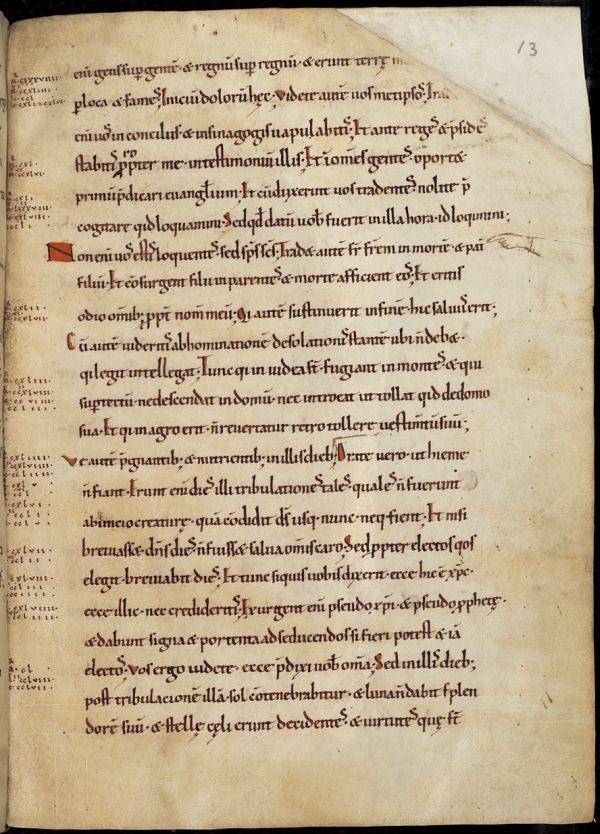 13
eni gens sup gentē · & regnū sup regnū · & erunt terrę
p loca & fameſ; Iniciū dolorū hęc · Videte autē vosmetipsoſ; Trad
eni uoſ in conciliis & in sinagogis uapulabitiſ; Et ante regeſ & p̄sideſ
stabitiſ p̱pter me · in testimoniū illis; Et in omēs genteſ oport&
primū p̄dicari euangliū; Et cū duxerint vos tradenteſ · nolite p̄
cogitare qid loquamini · Sed qđ datū uob fuerit in illa hora · id loqmini;
Non eni uoſ estiſ loquenteſ · sed sp̄s sc̄s; Trad& autē fr̄ frem in mortē · & pat
filiū; Et consurgent filii in parenteſ & morte afficient eoſ; Et eritis
odio omīb; p̱pt nom̄ meū · Qi autē sustinuerit in finē · hic saluus erit;
Cū autē uideritiſ abhominationē desolationiſ stantē ubi ñ deb& ·
qi legit intellegat · Tunc qi in iudea sī · fugiant in monteſ · & qui
sup tectū · ne descendat in domū · nec introeat ut tollat qid de domo
sua · Et qi in agro erit · ñ reuertatur retro tollere uestimtū suū;
Ve autē p̄gnantib; & nutrientib; in illis dieb; Orate uero · ut hieme
ñ fiant · Erunt eni dieſ illi tribulationeſ taleſ · qualeſ ñ fuerunt
ab inicio creaturę · quā cōdidit dš usq; nunc · neq; fient · Et nisi
breuiass& dñs dieſ · ñ fuiss& salua omis caro; Sed p̱pter electos qos
elegit · breuiabit dieſ; Et tunc si quis uobis dixerit · ecce hic ē xp̄c ·
ecce illic · nec credideritiſ; Exurgent eni pseudo xp̄i · & pseudo p̱phetę ·
& dabunt signa & portenta ad seducendos si fieri potest & iā
electoſ · Vos ergo uidete · ecce p̄dixi uob om̄a; Sed in illiſ dieb;
post tribulacionē illā · sol cōtenebrabitur · & luna ñ dabit splen
dorē suū · & stellę cęli erunt decidenteſ · & uirtuteſ quę sī